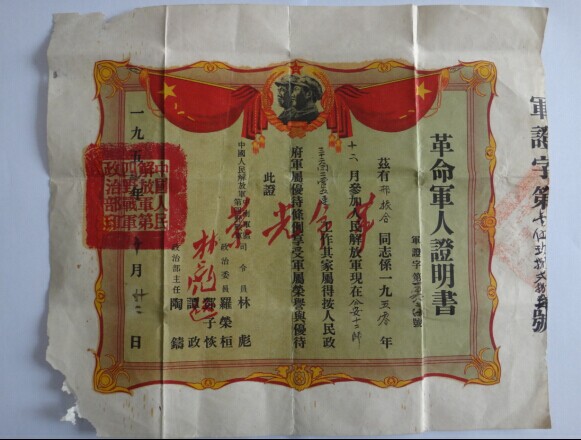 革命軍人證明書
軍證字第 號
茲有 同志係一九五零年
十二月參加人民解放軍現在公安十二師
工作其家屬得按人民政
府軍屬優待條例享受軍屬榮譽與優待
此證
中國人民解放軍
司令員林彪
政治委員羅榮桓
鄧子恢
譚政
政治部主任陶鑄
林彪
一九五 年 月廿二日
中國人民
解放軍第
四野戰軍
政治部印
革命光榮
軍證字第 號